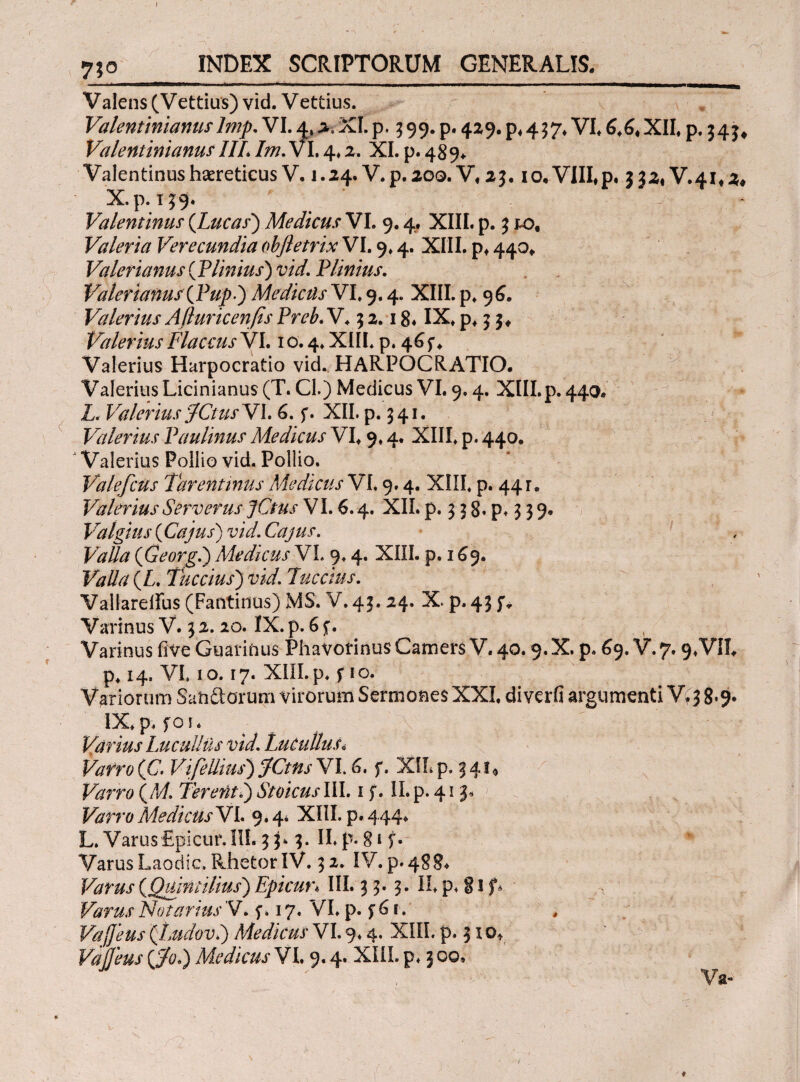 730 INDEX SCRIPTORUM GENERALIS.
Valens (Vettius) vid. Vettius.
Valentinianus Imp. VI. 4, 2. XI. p. 399. p. 429. p. 437. VI. 6.6. XII. p. 343.
Valentinianus III. Im. VI. 4. 2. XI. p. 489.
Valentinus hæreticus V. 1. 24. V. p. 200. V. 23. 10. VIII. p. 332. V. 41. 2.
X. p. 139.
Valentinus (Lucas) Medicus VI. 9. 4. XIII. p. 310.
Valeria Verecundia obstetrix VI. 9. 4. XIII. p. 440.
Valerianus (Plinius) vid. Plinius.
Valerianus (Pup.) Medicus VI. 9. 4. XIII. p. 96.
Valerius Asturicensis Preb. V. 32. 18. IX. p. 33.
Valerius Flaccus VI. 10. 4. XIII. p. 465.
Valerius Harpocratio vid. HARPOCRATIO.
Valerius Licinianus (T. Cl.) Medicus VI. 9. 4. XIII. p. 440.
L. Valerius JCtus VI. 6. 5. XII. p. 341.
Valerius Paulinus Medicus VI. 9. 4. XIII. p. 440.
Valerius Pollio vid. Pollio.
Valescus Tarentinus Medicus VI. 9. 4. XIII. p. 441.
Valerius Serverus JCtus VI. 6. 4. XII. p. 338. p. 339.
Valgius (Cajus) vid. Cajus.
Valla (Georg.) Medicus VI. 9. 4. XIII. p. 169.
Valla (L. Tuccius) vid. Tuccius.
Vallaressus (Fantinus) MS. V. 43. 24. X. p. 435.
Varinus V. 32. 20. IX. p. 65.
Varinus sive Guarinus Phavorinus Camers V. 40. 9. X. p. 69. V. 7. 9. VII.
p. 14. VI. 10. 17. XIII. p. 510.
Variorum Sanctorum virorum Sermones XXI. diversi argumenti V. 38. 9.
IX. p. 501.
Varius Lucullus vid. Lucullus.
Varro (C. Visellius) JCtns VI. 6. 5. XII. p. 341.
Varro (M. Terent.) Stoicus III. 15. II. p. 413.
Varro Medicus VI. 9. 4. XIII. p. 444.
L. Varus Epicur. III. 33. 3. II. p. 815.
Varus Laodic. Rhetor IV. 32. IV. p. 488.
Varus (Quintilius) Epicur. III. 33. 3. II. p. 815.
Varus Notarius V. 5. 17. VI. p. 561.
Vasseus (Ludov.) Medicus VI. 9. 4. XIII. p. 310.
Vasseus (Jo.) Medicus VI. 9. 4. XIII. p. 300.
Va-